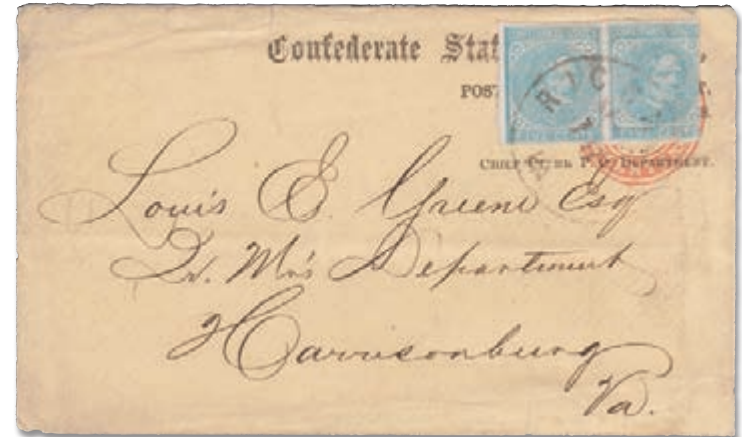 Confederate Stat
POST
RICH
CHIEF CLERK P. O. DEPARTMENT.
Louis E. Greene Esq
Qr. Mrs Department
Harrisonburg
Va.